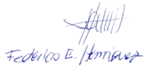 Federico E. Henriquez